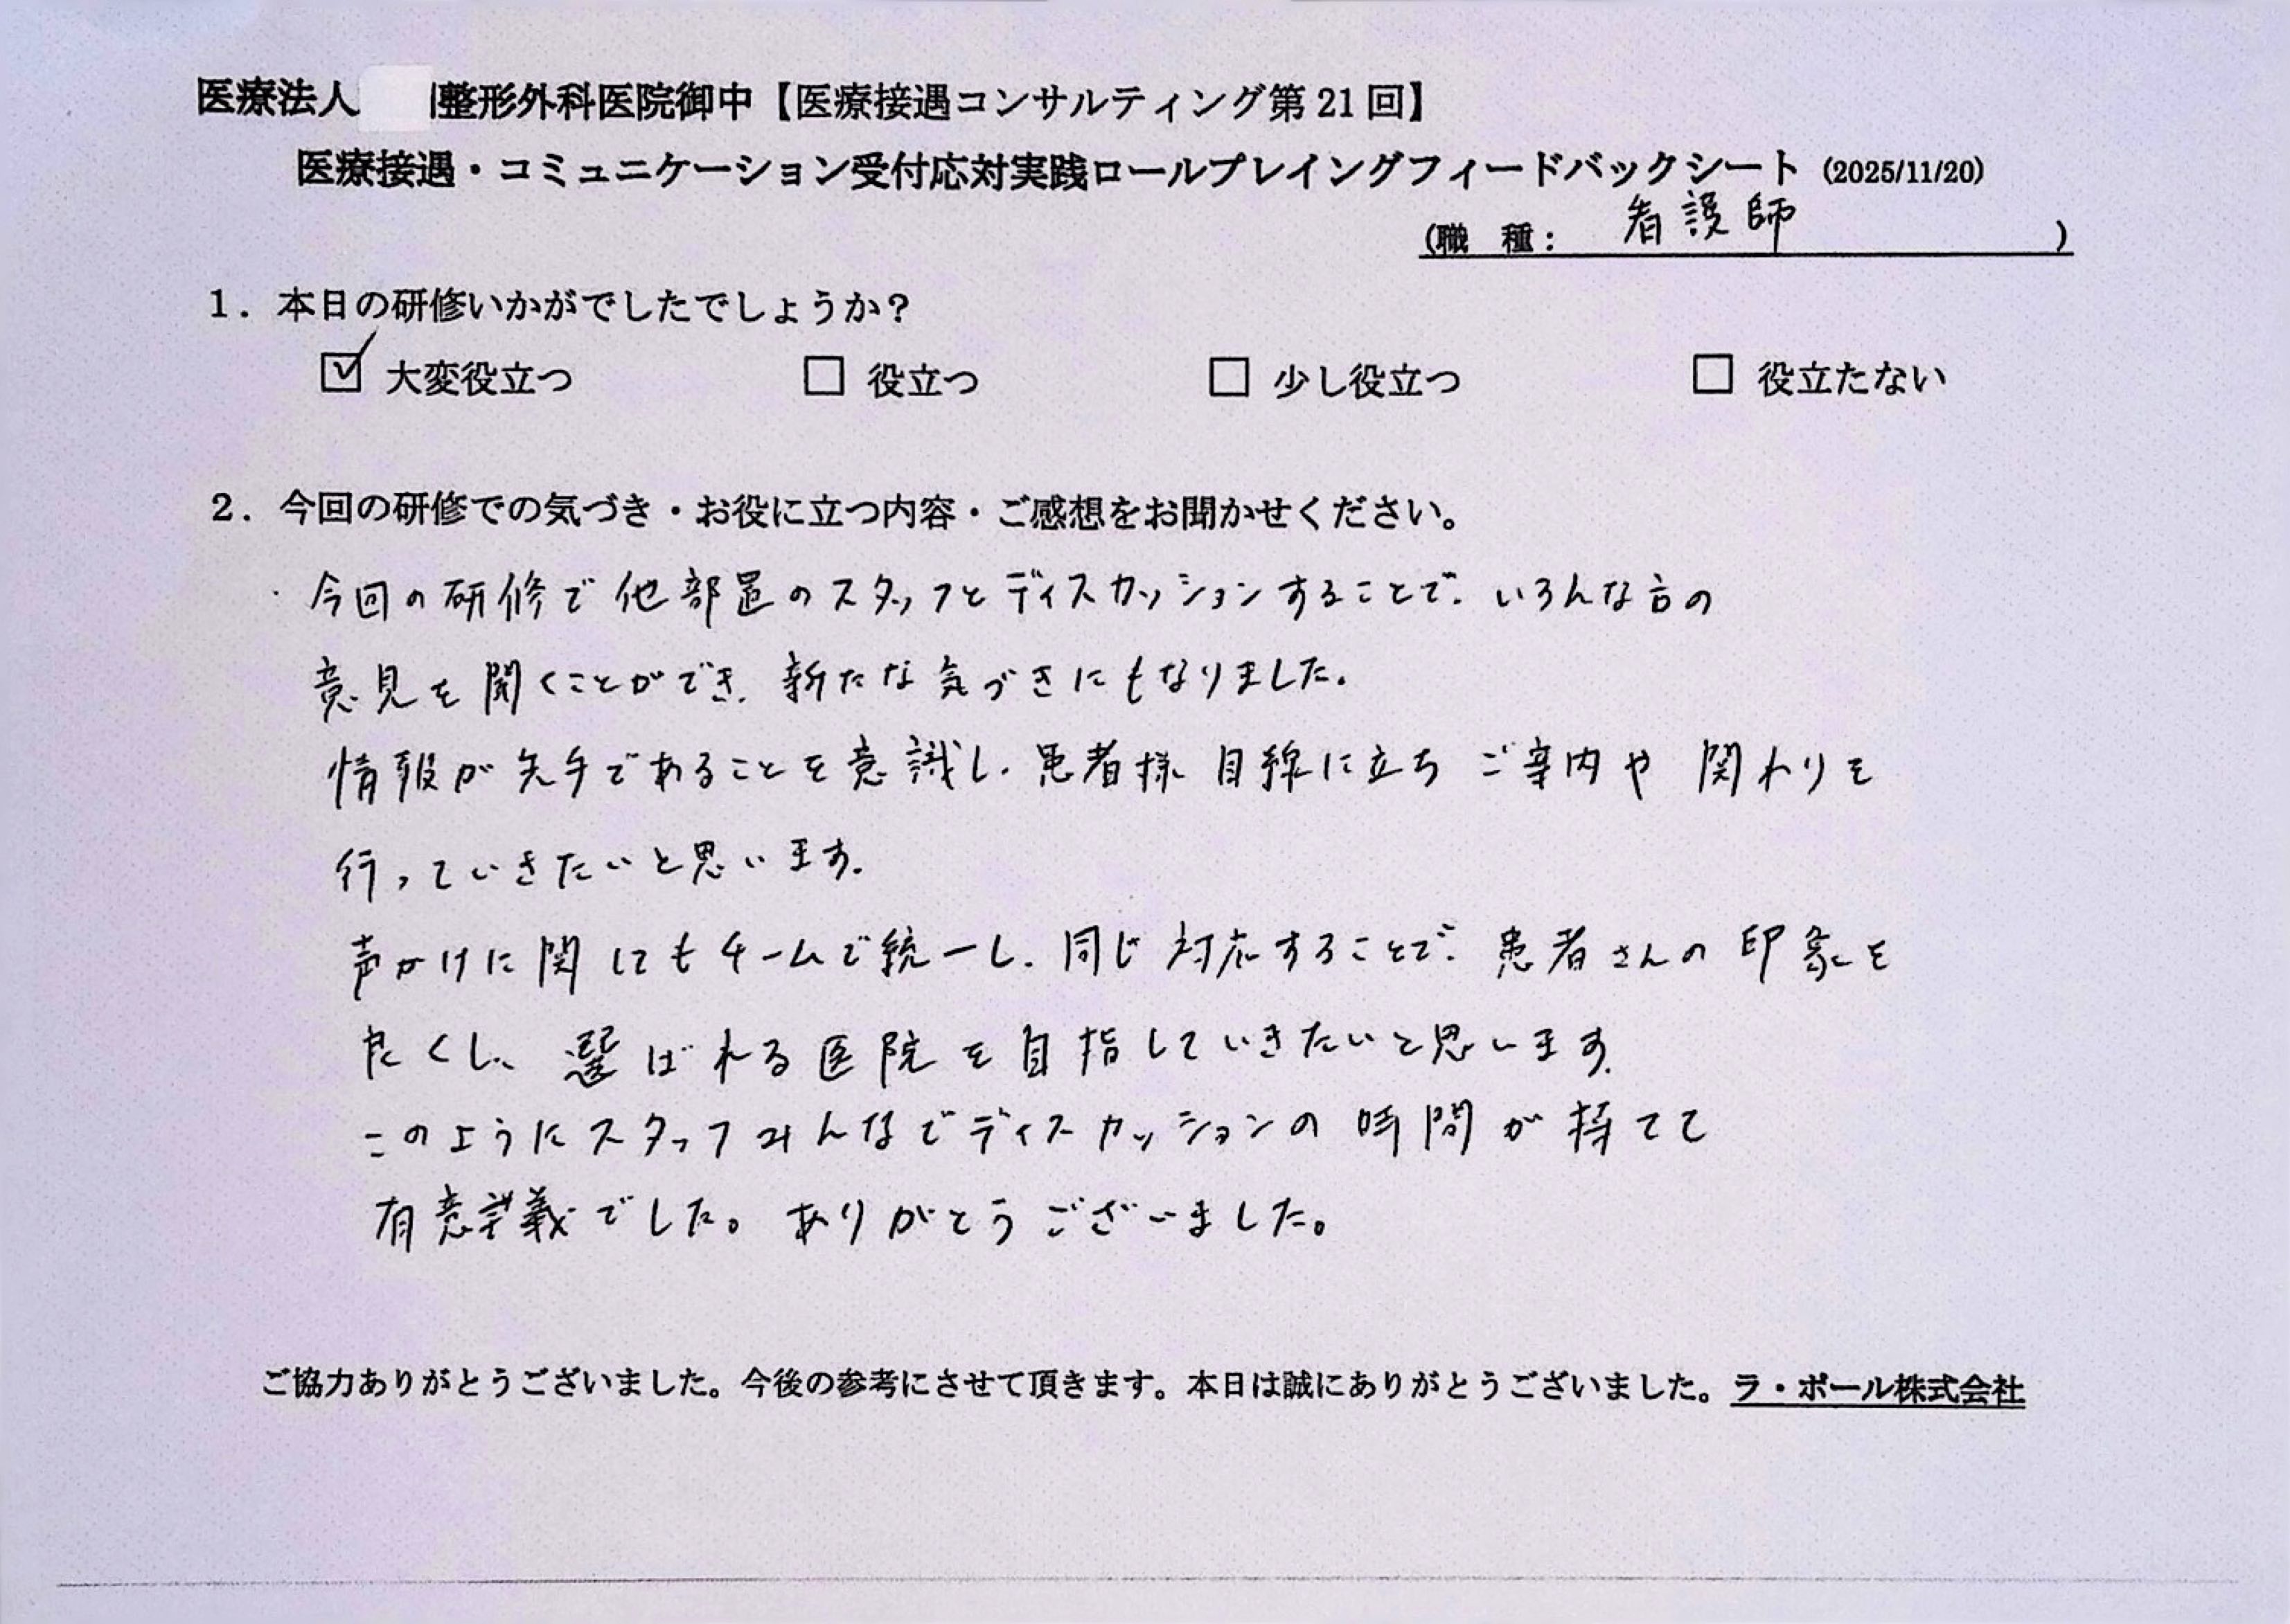 医療法人 整形外科医院御中【医療接遇コンサルティング第21回】
医療接遇・コミュニケーション受付応対実践ロールプレイングフィードバックシート (2025/11/20)
(職 種： 看護師 )
1．本日の研修いかがでしたでしょうか？
☑ 大変役立つ □ 役立つ □ 少し役立つ □ 役立たない
2．今回の研修での気づき・お役に立つ内容・ご感想をお聞かせください。
・今回の研修で他部署のスタッフとディスカッションすることで、いろんな方の
意見を聞くことができ、新たな気づきにもなりました。
情報が先手であることを意識し、患者様目線に立ちご案内や関わりを
行っていきたいと思います。
声かけに関してもチームで統一し、同じ対応することで、患者さんの印象を
良くし、選ばれる医院を目指していきたいと思います。
このようにスタッフみんなでディスカッションの時間が持てて
有意義でした。ありがとうございました。
ご協力ありがとうございました。今後の参考にさせて頂きます。本日は誠にありがとうございました。ラ・ポール株式会社